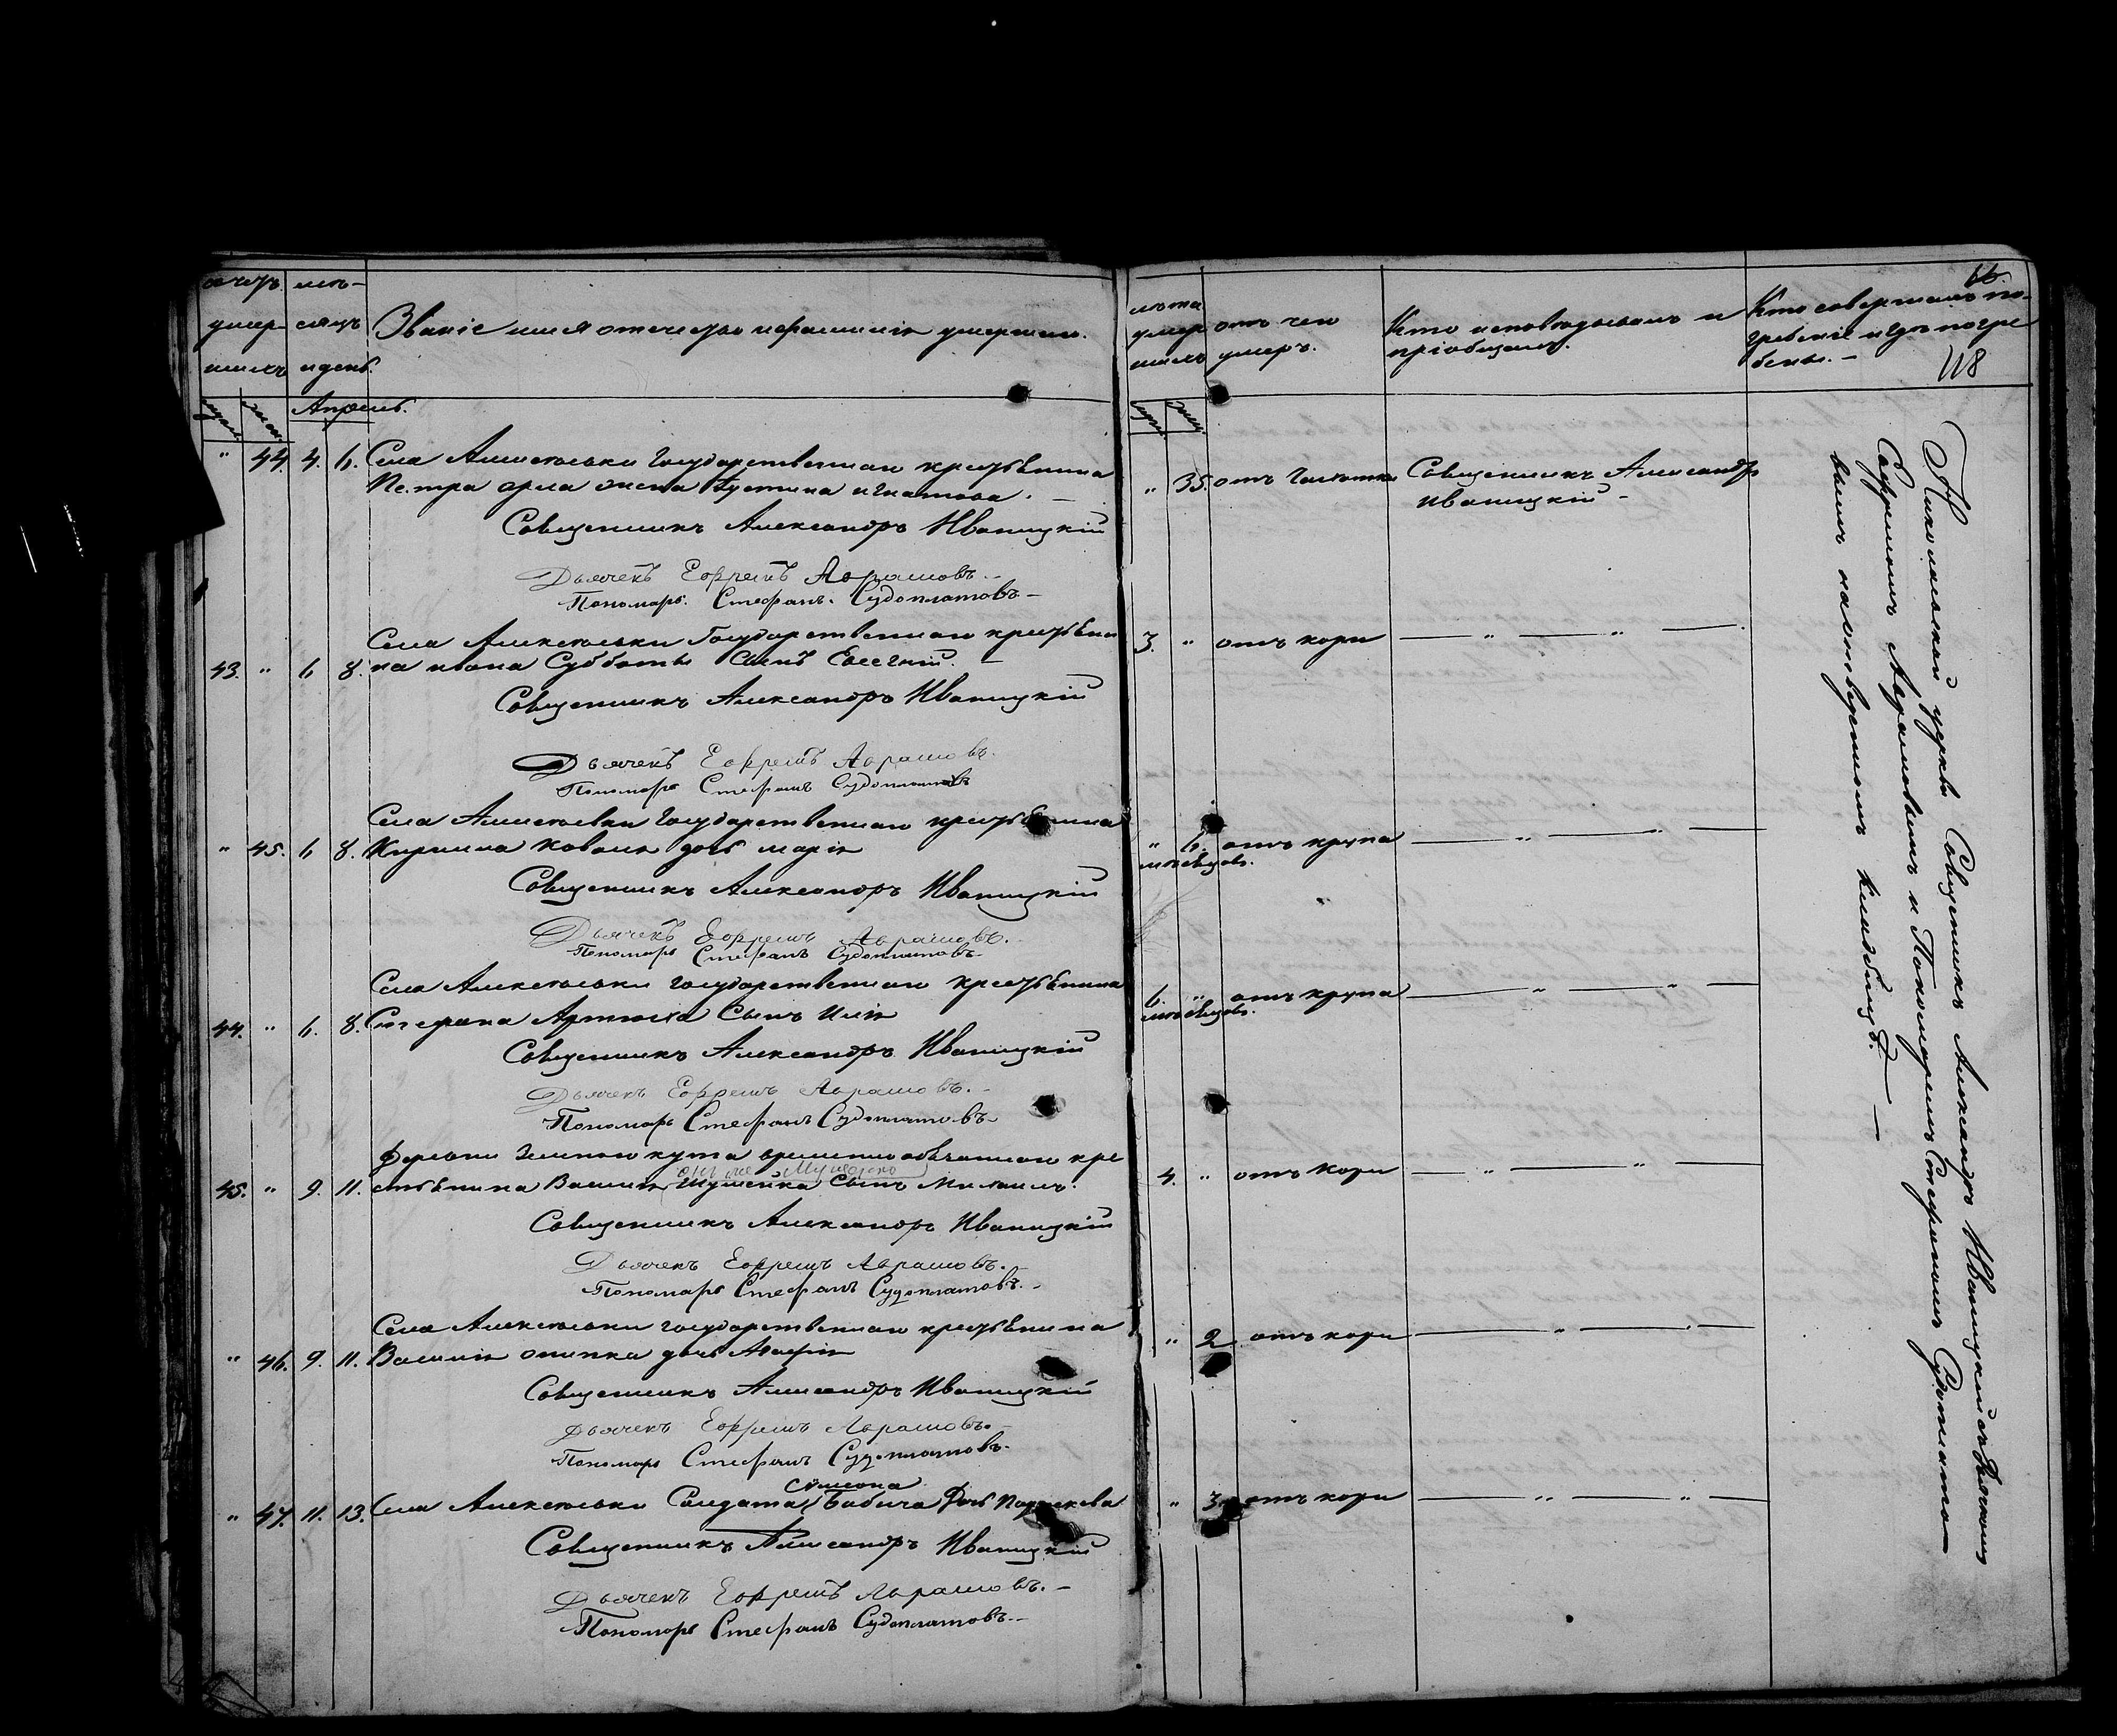 счетъ умер-шихъ
мѣ-сяцъ и день.
Званіе имя отечество и фамилія умершаго.
лѣта умер шихъ
отъ чего умеръ.
Кто исповѣдывалъ и пріобщалъ.
Кто совершалъ по-гребеніе и гдѣ погре бены. –
66.
118
Апрель.
" 44. 4. 6. Села Алексѣевки Государственнаго крестьянина
Петра орла жена Густина игнатова. –
" 35. отъ чахотки Священникъ Александръ
Иваницкій –
Священникъ Александръ Иваницкій
Дьячекъ Ефремъ Авраמовъ.
Пономарь Стефанъ Судоплатовъ –
Села Алексѣевки Государственнаго крестьяни
43. " 6 8. на ивана Субботы Сынъ Евсегній. –
3. " отъ кори — " — " —
Священникъ Александръ Иваницкій
Дьячекъ Ефремъ Аврамовъ.
Пономарь Стефанъ Судоплатовъ
Села Алексѣевки Государственнаго крестьянина
" 45. 6 8. Кирилла Коваля дочь марія
" 6. мѣсяцовъ. отъ крупа — " — " —
Священникъ Александръ Иваницкій
Дьячекъ Ефремъ Аврамовъ.
Пономарь Стефанъ Судоплатовъ.
Села Алексѣевки государственнаго крестьянина
44. " 6. 8. Стефана Артюха Сынъ Илія
6. " мѣсяцовъ. отъ крупа — " — " —
Священникъ Александръ Иваницкій
Дьячекъ Ефремъ Аврамовъ. –
Пономарь Стефанъ Судоплатовъ –
Деревни Зеленого кута временнообязаннаго кре
45. " 9. 11. стьянина Василія Шушейка Сынъ Михаилъ.
4. " отъ кори — " — " —
Священникъ Александръ Иваницкій
Дьячекъ Ефремъ Аврамовъ.
Пономарь Стефанъ Судоплатовъ. –
Села Алексѣевки государственнаго крестьянина
" 46. 9. 11. Василія онипка дочь Агафія
" 2 отъ кори — " — " —
Священникъ Александръ Иваницкій
Дьячекъ Ефремъ Аврамовъ. –
Пономарь Стефанъ Судоплатовъ.
Сѵмеона
" 47. 11. 13. Села Алексѣевки Солдата Бабича Дочь Параскева
" 3. отъ кори — " — " —
Священникъ Александръ Иваницкій
Дьячекъ Ефремъ Аврамовъ. –
Пономарь Стефанъ Судоплатовъ –
Николаевской церкви Священникъ Александръ Иваницкій съ Дьячкомъ
Ефремомъ Аврамовымъ и Пономаремъ Стефаномъ Судоплато
вымъ на отведенномъ кладбищѣ. –